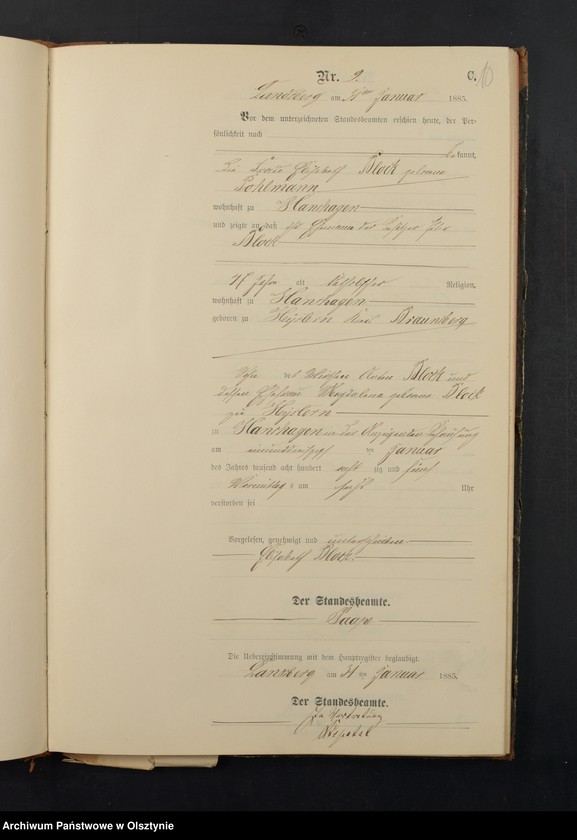 Nr. 9. C. 10
Landsberg am 31ten Januar 1885.
Vor dem unterzeichneten Standesbeamten erschien heute, der Per-
sönlichkeit nach
bekannt,
die Frau Elisabeth Block geborene
Pohlmann
wohnhaft zu Hanshagen
und zeigte an, daß ihr Ehemann der
Block
Jahre alt katholischer Religion,
wohnhaft zu Hanshagen
geboren zu Heistern Kreis Braunsberg
Sohn des Anton Block und
dessen Ehefrau Magdalena geborene Block
zu Heistern
zu Hanshagen in der Behausung
am einunddreißig ten Januar
des Jahres tausend acht hundert acht zig und fünf
Vormittag s um sechs Uhr
verstorben sei
Vorgelesen, genehmigt und unterschrieben
Elisabeth Block.
Der Standesbeamte.
Paape
Die Uebereinstimmung mit dem Hauptregister beglaubigt.
Landsberg am 31 ten Januar 1885.
Der Standesbeamte.
In Vertretung
Archiwum Państwowe w Olsztynie